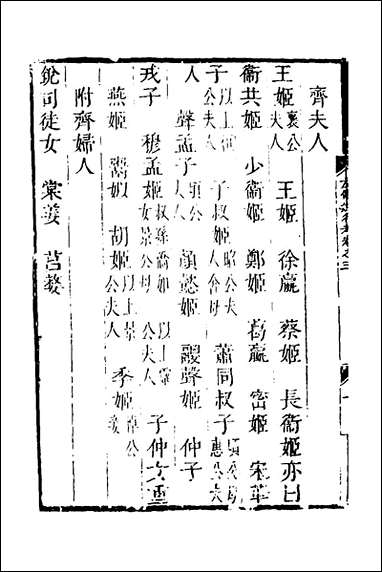 齊夫人
王姬襄公夫人 王姬 徐嬴 蔡姬 長衞姬亦曰
衞共姬 少衞姬 鄭姬 葛嬴 密姬 宋華
子以上桓公夫人 子叔姬昭公夫人舍母 蕭同叔子頃公母惠公夫
人 聲孟子頃公夫人 顏懿姬 鬷聲姬 仲子
戎子 穆孟姬叔孫僑如女景公母 以上靈公夫人 子仲文
燕姬 鬻姒 胡姬以上景公夫人 季姬悼公
附齊婦人
銳司徒女 棠姜